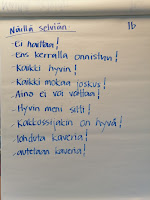 Näillä selviän 1b
- Ei haittaa!
- Ens kerralla onnistuu!
- Kaikki hyvin!
- Kaikki mokaa joskus!
- Aina ei voi voittaa!
- Hyvin meni silti!
- Kakkossijakin on hyvä!
- lohduta kaveria!
- autetaan kaveria!